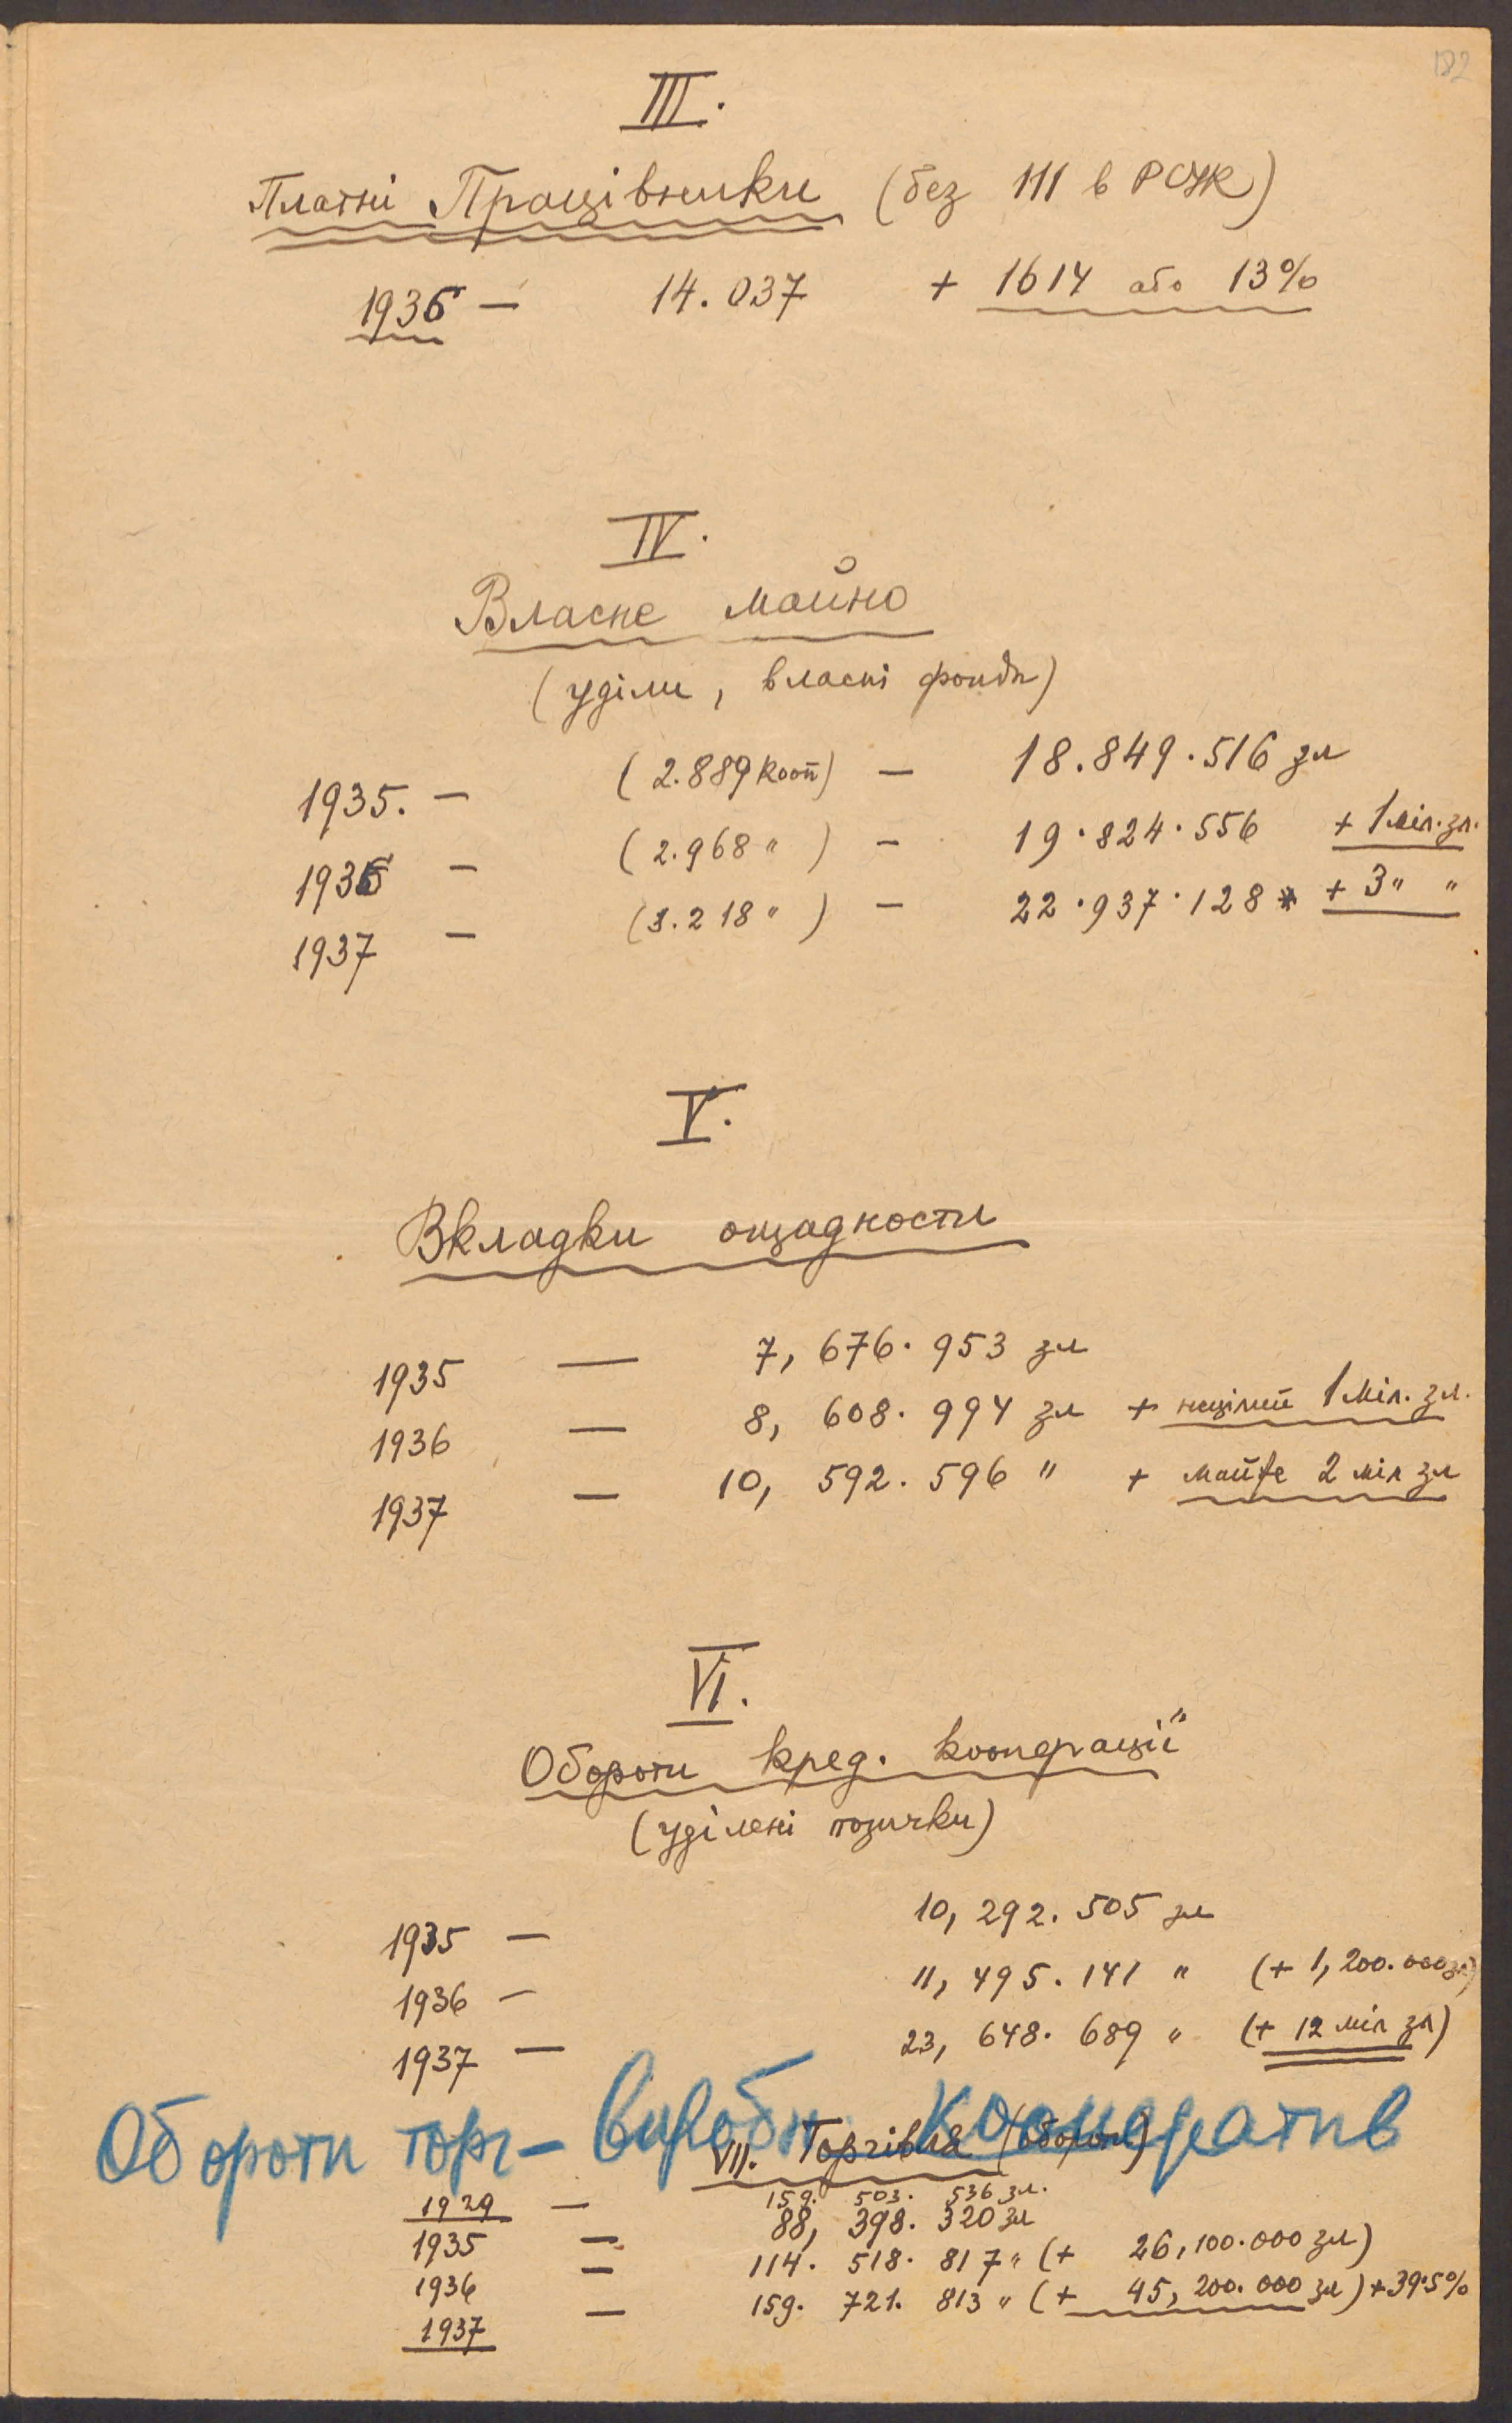 182
III.
Платні Працівники (без 111 в РСУК)
1936 — 14.037 + 1614 або 13%
IV.
Власне майно
(уділи, власні фонди)
1935. — (2.889 кооп) — 18.849.516 зл
1936 — (2.968 ") — 19.824.556 + 1 міл. зл.
1937 — (3.218 ") — 22.937.128 * + 3 " "
V.
Вкладки ощадности
1935 — 7, 676. 953 зл
1936 — 8, 608. 994 зл + нецілий 1 міл. зл.
1937 — 10, 592. 596 " + майже 2 міл зл
VI.
Обороти кред. кооперації
(уділені позички)
1935 — 10, 292. 505 зл
1936 — 11, 495. 141 " (+ 1, 200. 000 зл)
1937 — 23, 648. 689 " (+ 12 міл зл)
Обороти торг - виробн. Кооператив
VII. Торгівля (обороти)
1929 — 159. 503. 536 зл.
1935 — 88, 398. 320 зл
1936 — 114. 518. 817 " (+ 26, 100. 000 зл)
1937 — 159. 721. 813 " (+ 45, 200. 000 зл) + 39.5%